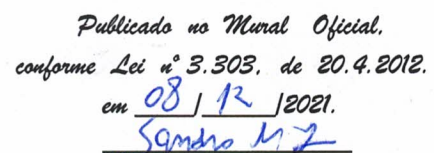 Publicado no Mural Oficial,
conforme Lei nº 3.303, de 20.4.2012.
em 08 / 12 /2021.
Sandro